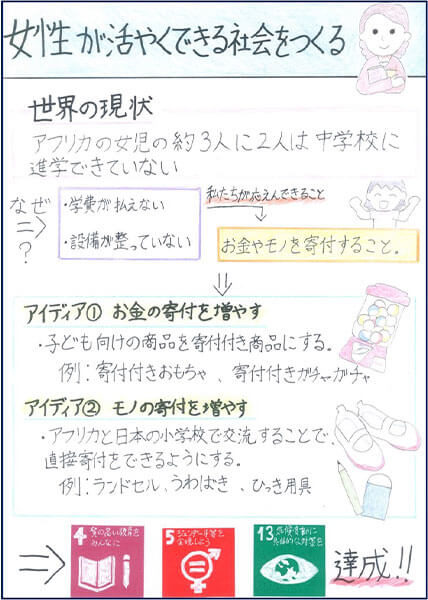 女性が活やくできる社会をつくる
世界の現状
アフリカの女児の約3人に2人は中学校に
進学できていない
なぜ
?
・学費が払えない
・設備が整っていない
私たちが応えんできること
お金やモノを寄付すること。
アイディア① お金の寄付を増やす
・子ども向けの商品を寄付付き商品にする。
例:寄付付きおもちゃ、寄付付きガチャガチャ
アイディア② モノの寄付を増やす
・アフリカと日本の小学校で交流することで、
直接寄付をできるようにする。
例:ランドセル、うわばき、ひっき用具
4 質の高い教育を
みんなに
5 ジェンダー平等を
実現しよう
13 気候変動に
具体的な対策を
達成!!